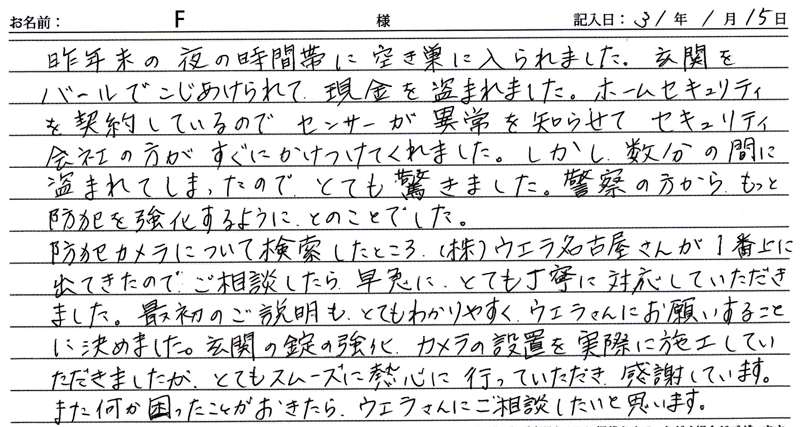 お名前： F 様 記入日：31年 1月 15日
昨年末の夜の時間帯に空き巣に入られました。玄関を
バールでこじあけられて、現金を盗まれました。ホームセキュリティ
を契約しているので センサーが異常を知らせて セキュリティ
会社の方がすぐにかけつけてくれました。しかし、数分の間に
盗まれてしまったので、とても驚きました。警察の方から、もっと
防犯を強化するように、とのことでした。
防犯カメラについて検索したところ、（株）ウエラ名古屋さんが1番上に
出てきたので、ご相談したら、早急に、とても丁寧に対応していただき
ました。最初のご説明も、とてもわかりやすく、ウエラさんにお願いすること
に決めました。玄関の錠の強化、カメラの設置を実際に施工してい
ただきましたが、とてもスムーズに熱心に行っていただき、感謝しています。
また何か困ったことがおきたら、ウエラさんにご相談したいと思います。